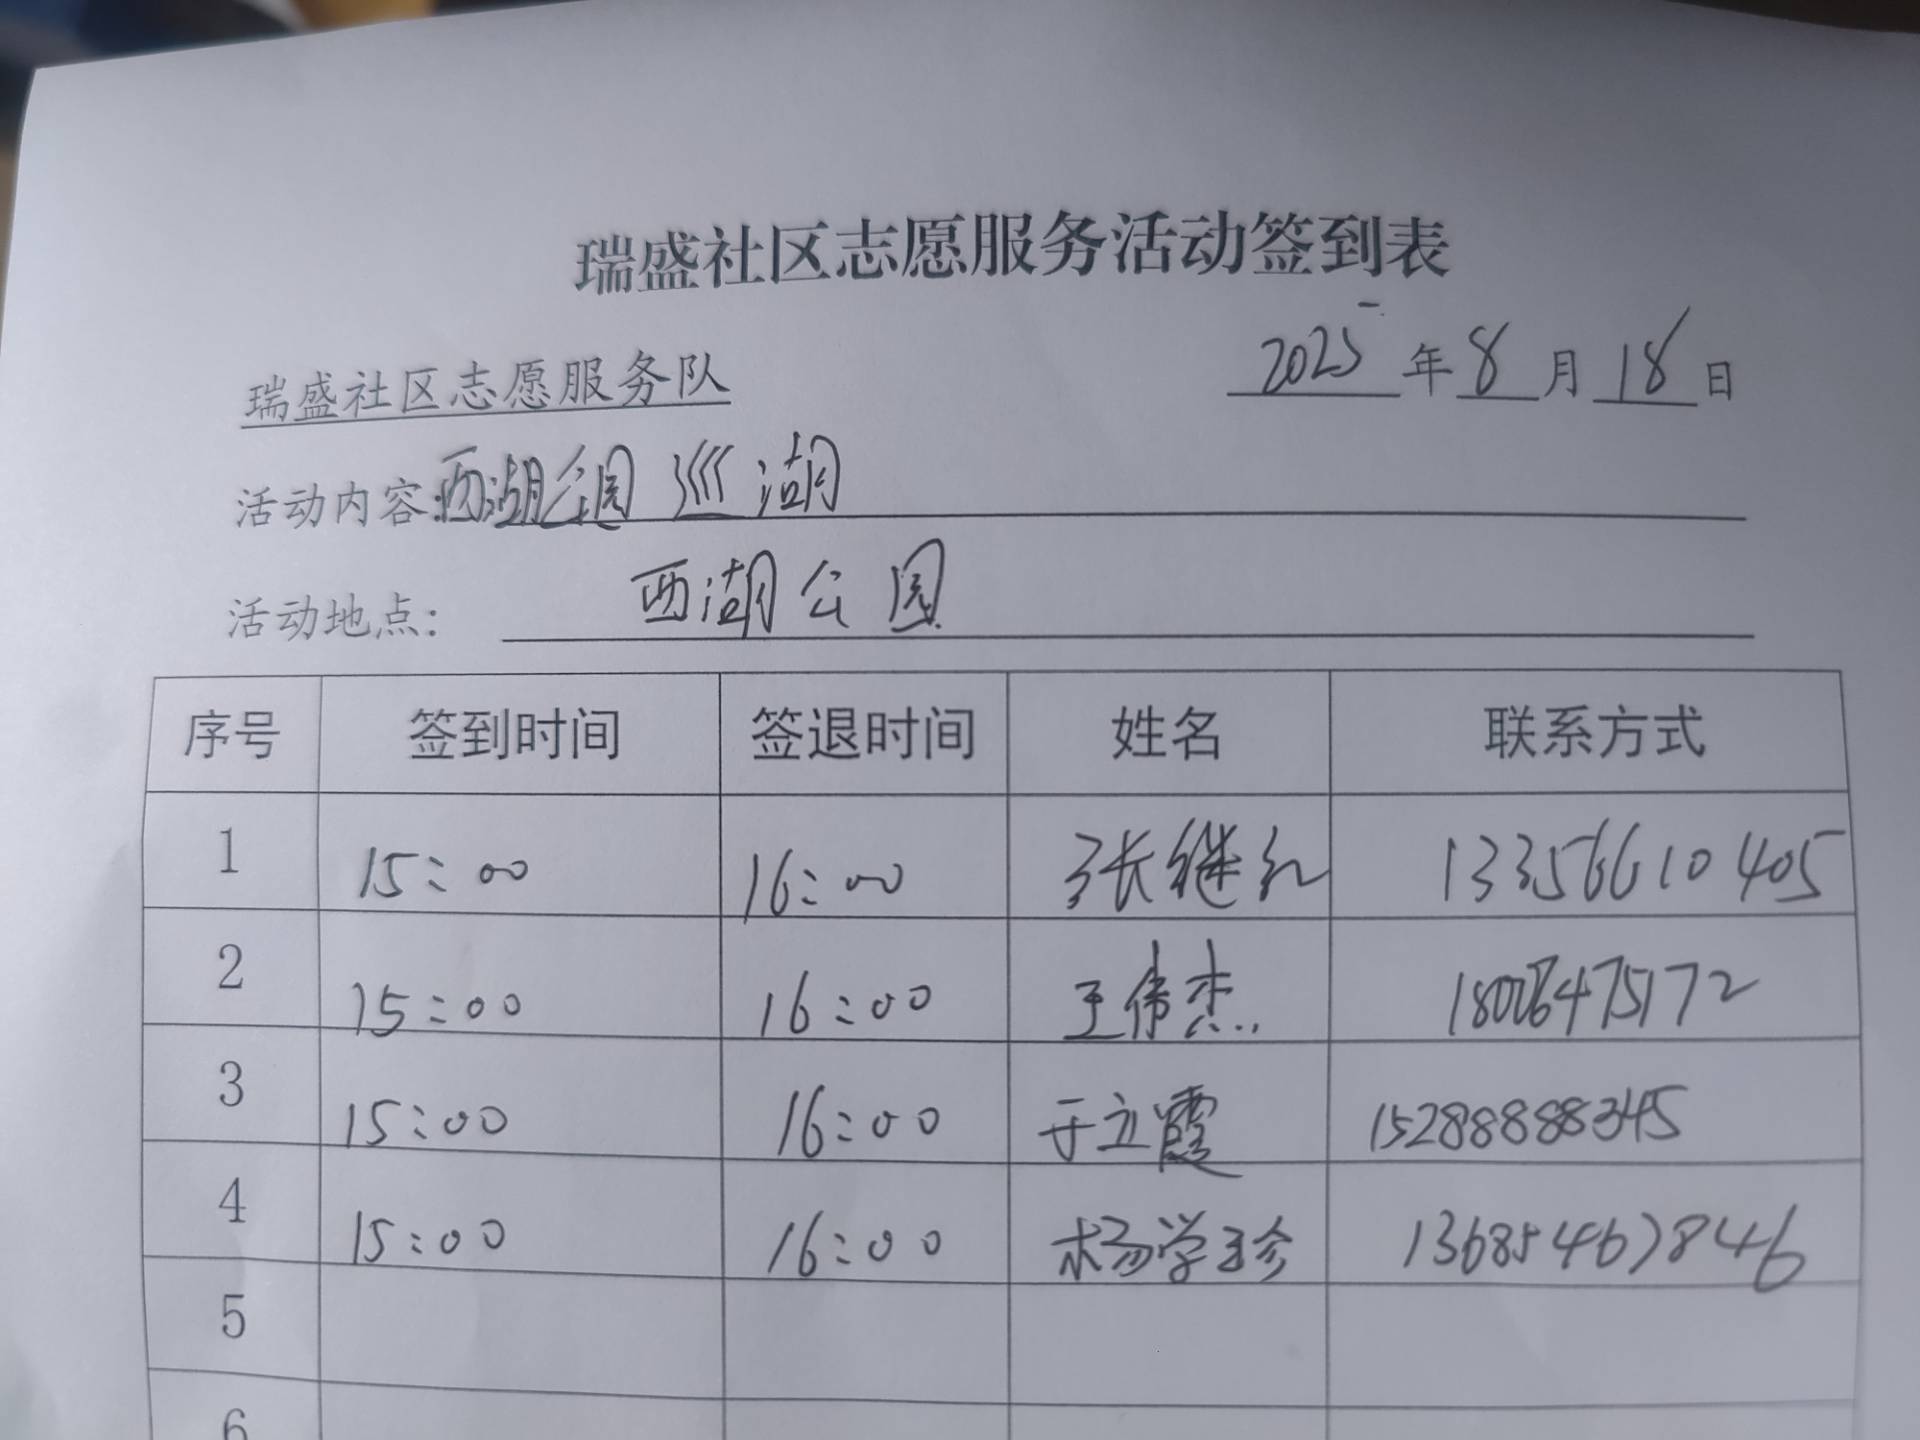 瑞盛社区志愿服务活动签到表
瑞盛社区志愿服务队 2025年8月18日
活动内容:西湖公园 巡湖
活动地点: 西湖公园
序号 签到时间 签退时间 姓名 联系方式
1 15:00 16:00 张继红 13356610405
2 15:00 16:00 王伟杰 18006475172
3 15:00 16:00 于立霞 15288888345
4 15:00 16:00 杨学珍 13685467846
5
6